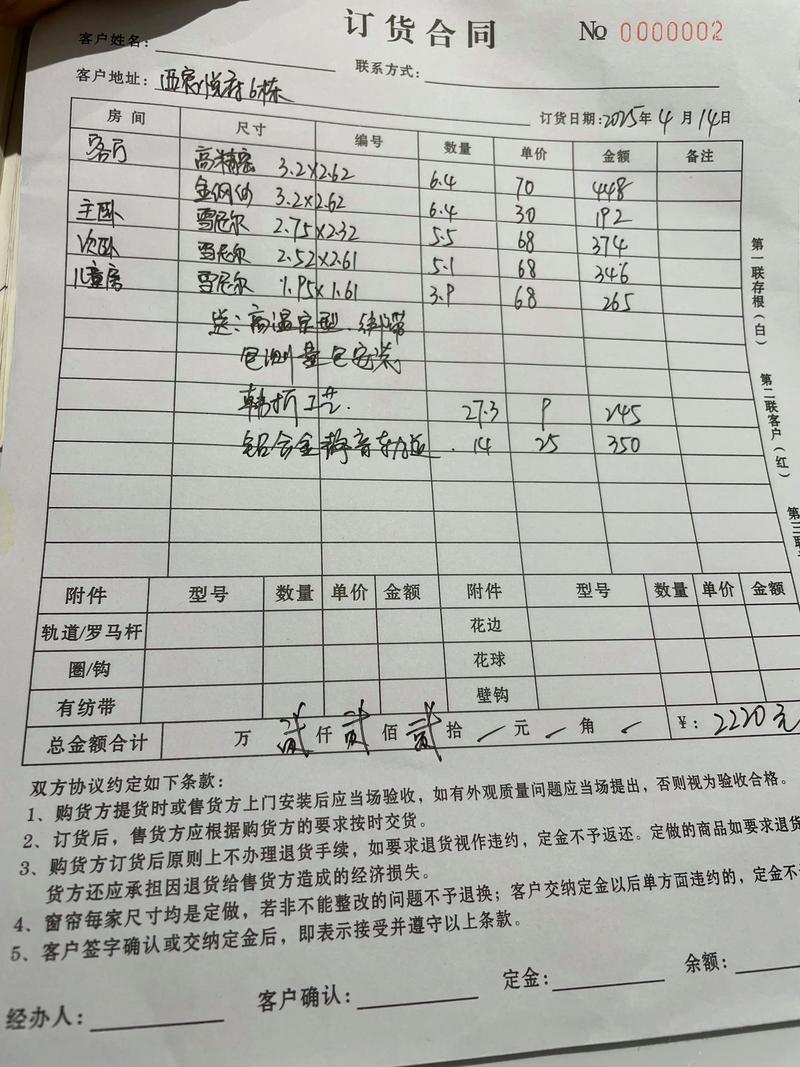 订货合同 № 0000002
客户姓名：
联系方式：
客户地址： 悦府6栋
订货日期：2025年4月14日
房间 尺寸 编号 数量 单价 金额 备注
客厅 高精密 3.2×2.62 6.4 70 448
金刚纱 3.2×2.62 6.4 30 192
主卧 雪尼尔 2.75×2.32 5.5 68 374
次卧 雪尼尔 2.52×2.61 5.1 68 346
儿童房 雪尼尔 1.95×1.61 3.9 68 265
送：高温定型.绑带
包测量包安装
韩折工艺. 27.3 9 245
铝合金静音轨道. 14 25 350
第一联存根（白）
第二联客户（红）
第三联
附件 型号 数量 单价 金额 附件 型号 数量 单价 金额
轨道/罗马杆 花边
圈/钩 花球
有纺带 壁钩
总金额合计 万 贰 仟 贰 佰 贰 拾 元 角 ¥：2220元
双方协议约定如下条款：
1、购货方提货时或售货方上门安装后应当场验收，如有外观质量问题应当场提出，否则视为验收合格。
2、订货后，售货方应根据购货方的要求按时交货。
3、购货方订货后原则上不办理退货手续，如要求退货视作违约，定金不予返还。定做的商品如要求退货
货方还应承担因退货给售货方造成的经济损失。
4、窗帘每家尺寸均是定做，若非不能整改的问题不予退换；客户交纳定金以后单方面违约的，定金不
5、客户签字确认或交纳定金后，即表示接受并遵守以上条款。
经办人： 客户确认： 定金： 余额：